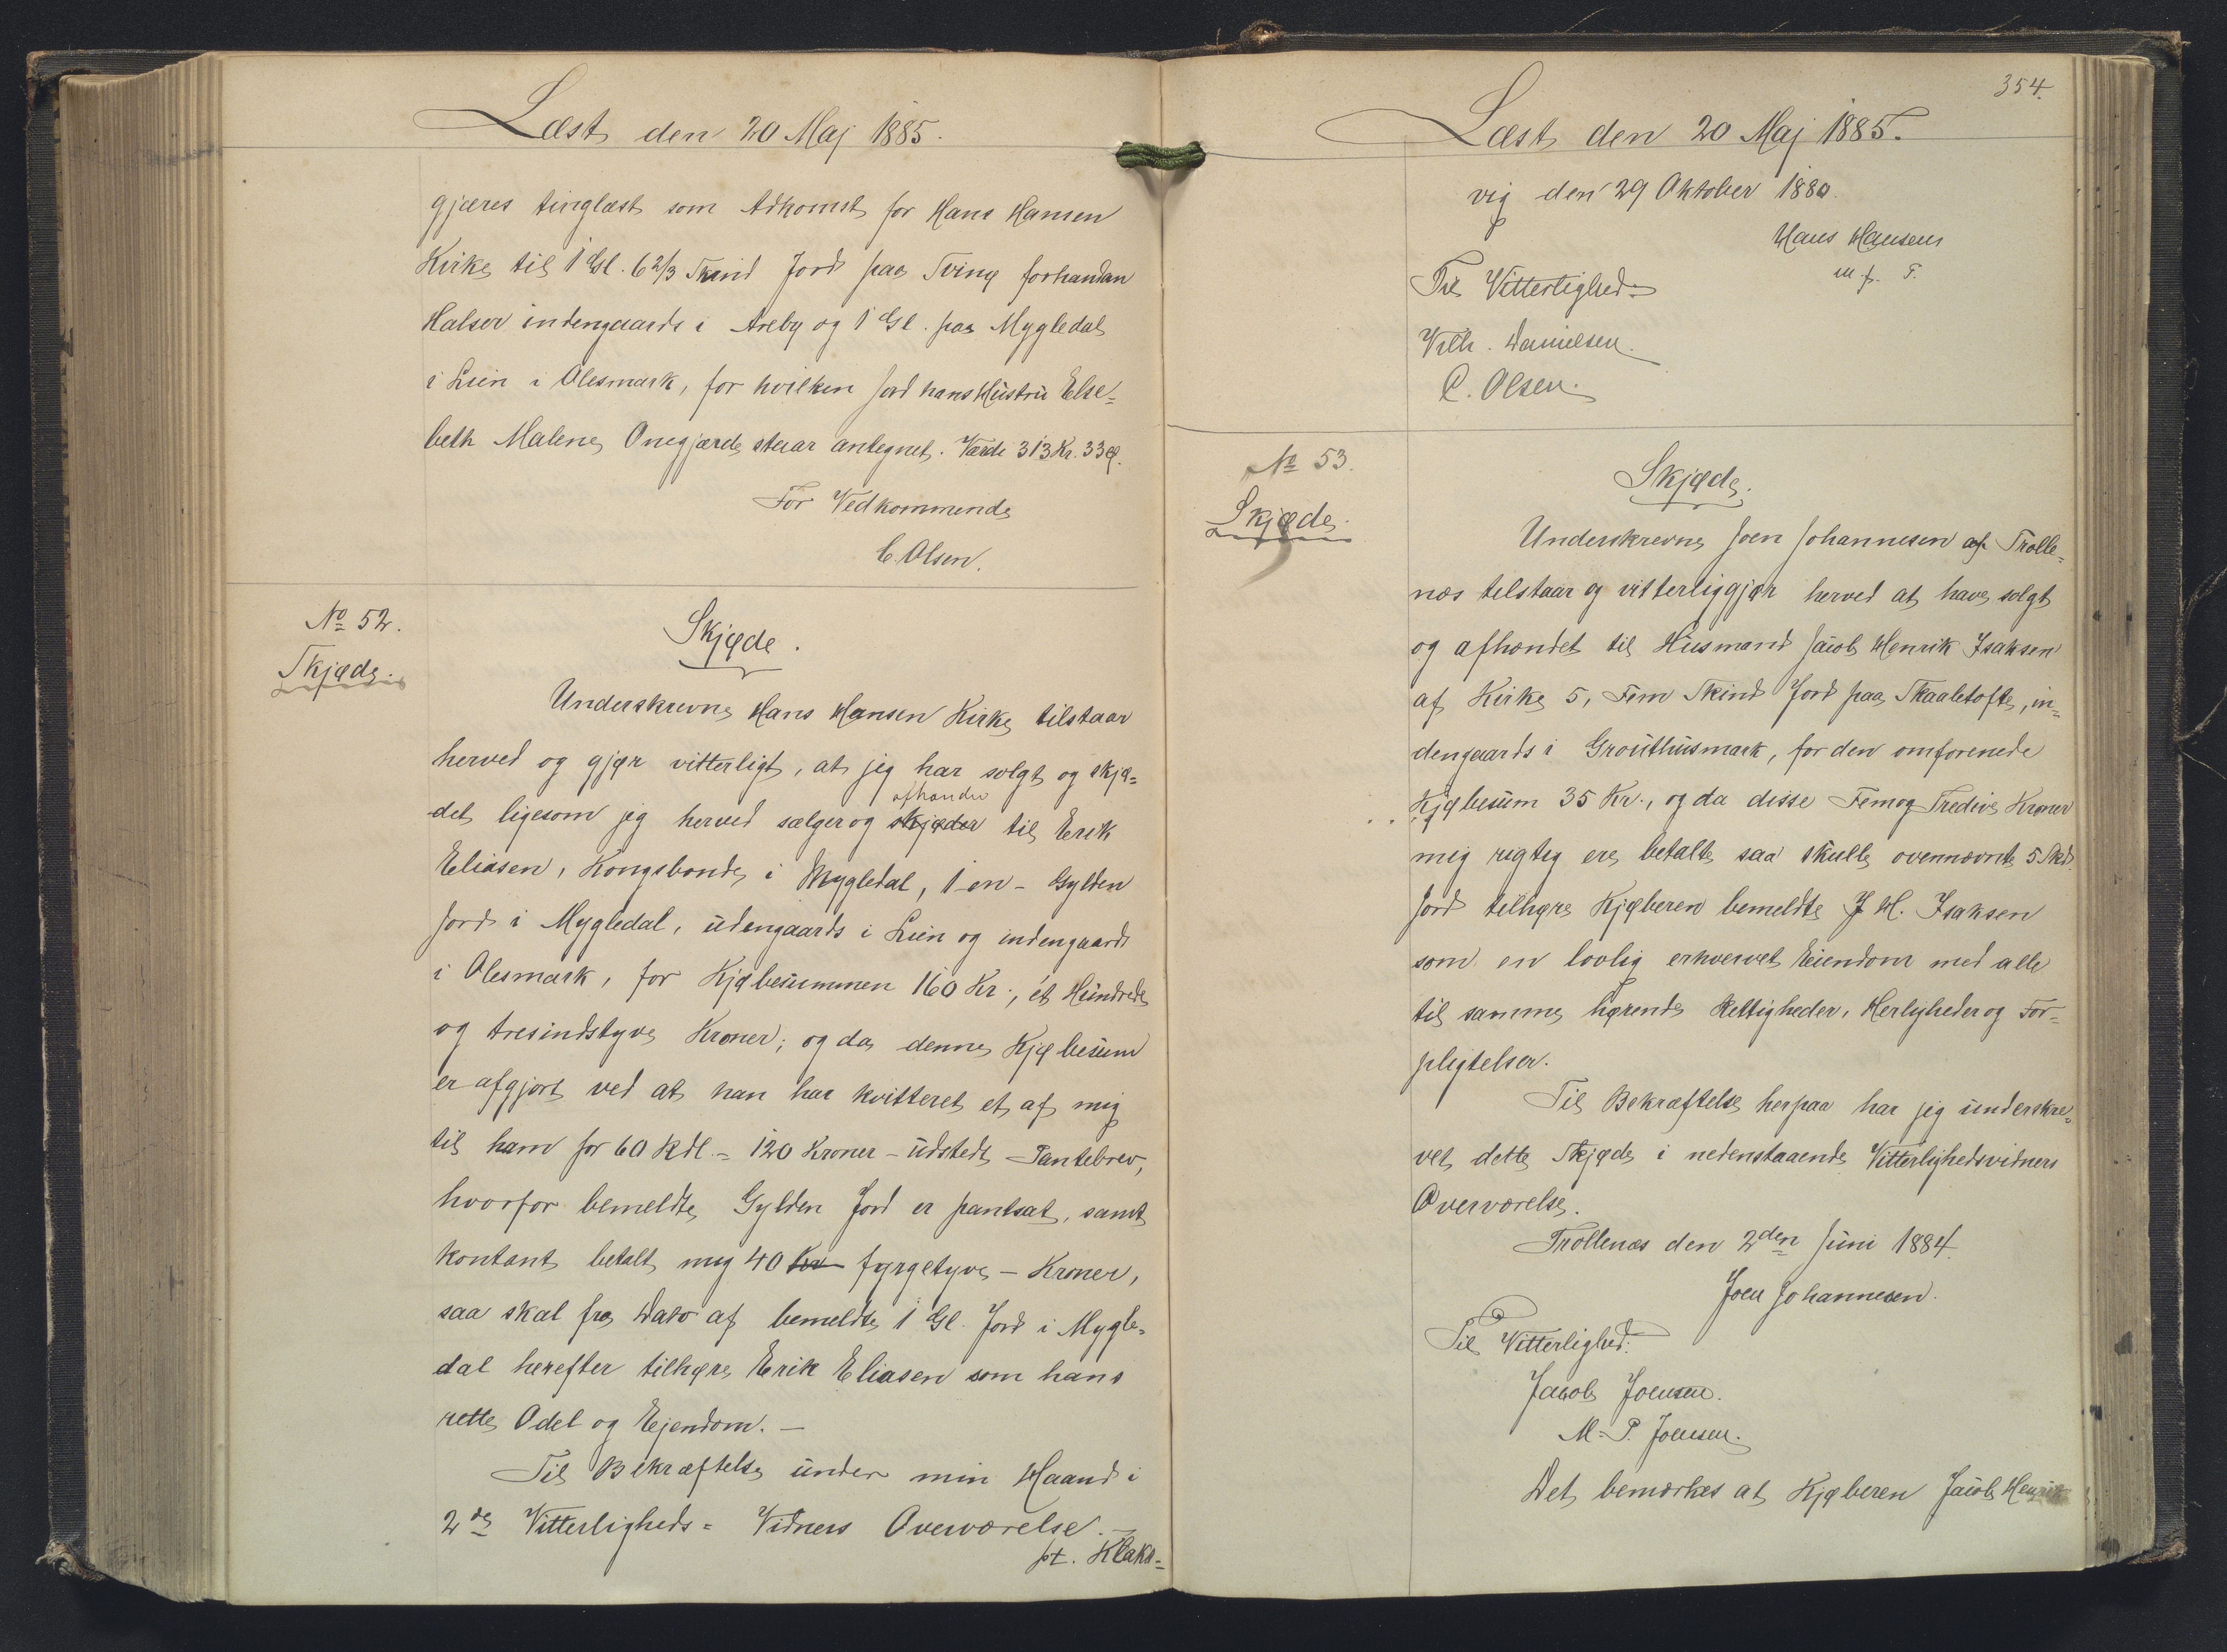 Læst den 20 Maj 1885.
gjøres tinglæst som Adkomst for Hans Hansen
Kirke til 1 Gl. 6 2/3 Skind Jord paa Tving forhandan
Halsor indengaards i Areby og 1 Gl. paa Mygledal
i Lien i Olesmark, for hvilken Jord hans Hustru Else-
beth Malene Onegjærde staar antegnet. Værdi 313 Kr. 33 Ø.
For Vedkommende
C. Olsen.
No 52.
Skjøde.
Skjøde.
Underskrevne Hans Hansen Kirke tilstaar
herved og gjør vitterligt, at jeg har solgt og skjø-
afhænder
det ligesom jeg herved sælger og skjøder til Erik
Eliasen, Kongsbonde i Mygledal, 1 - en - Gylden
Jord i Mygledal, udengaards i Lien og indengaards
i Olesmark, for Kjøbesummen 160 Kr., et Hundrede
og tresindstyve Kroner; og da denne Kjøbesum
er afgjort ved at han har kvitteret et af mig
til ham for 60 Rdl. = 120 Kroner - udstedt Pantebrev,
hvorfor bemeldte Gylden Jord er pantsat, samt
kontant betalt mig 40 Kr fyrgetyve - Kroner,
saa skal fra Dato af bemeldte 1 Gl. Jord i Mygle-
dal herefter tilhøre Erik Eliasen som hans
rette Odel og Ejendom. -
Til Bekræftelse under min Haand i
2de Vitterligheds- Vidners Overværelse. -
pt. Klaks-
354.
Læst den 20 Maj 1885.
vig den 29 Oktober 1880.
Hans Hansen
m. f. P.
Til Vitterlighed
Vilh. Danielsen.
C. Olsen.
No 53.
Skjøde.
Skjøde.
Underskrevne Joen Johannesen af Trolle-
næs tilstaar og vitterliggjør herved at have solgt
og afhændet til Husmand Jacob Henrik Isaksen
af Kirke 5, Fem Skind Jord paa Skaaletofte, in-
dengaards i Grouthusmark, for den omforenede
Kjøbesum 35 Kr., og da disse Femog Tredive Kroner
mig rigtig ere betalte saa skulle ovennævnte 5 Skd.
Jord tilhøre Kjøberen bemeldte J. H. Isaksen
som en lovlig erhvervet Eiendom med alle
til samme hørende Rettigheder, Herligheder og For-
pligtelser.
Til Bekræftelse herpaa har jeg underskre-
vet dette Skjøde i nedenstaaende Vitterlighedsvidners
Overværelse.
Trollenæs den 2den Juni 1884.
Joen Johannesen.
Til Vitterlighed.
Jacob Joensen.
M. P. Joensen.
Det bemærkes at Kjøberen Jacob Henrik